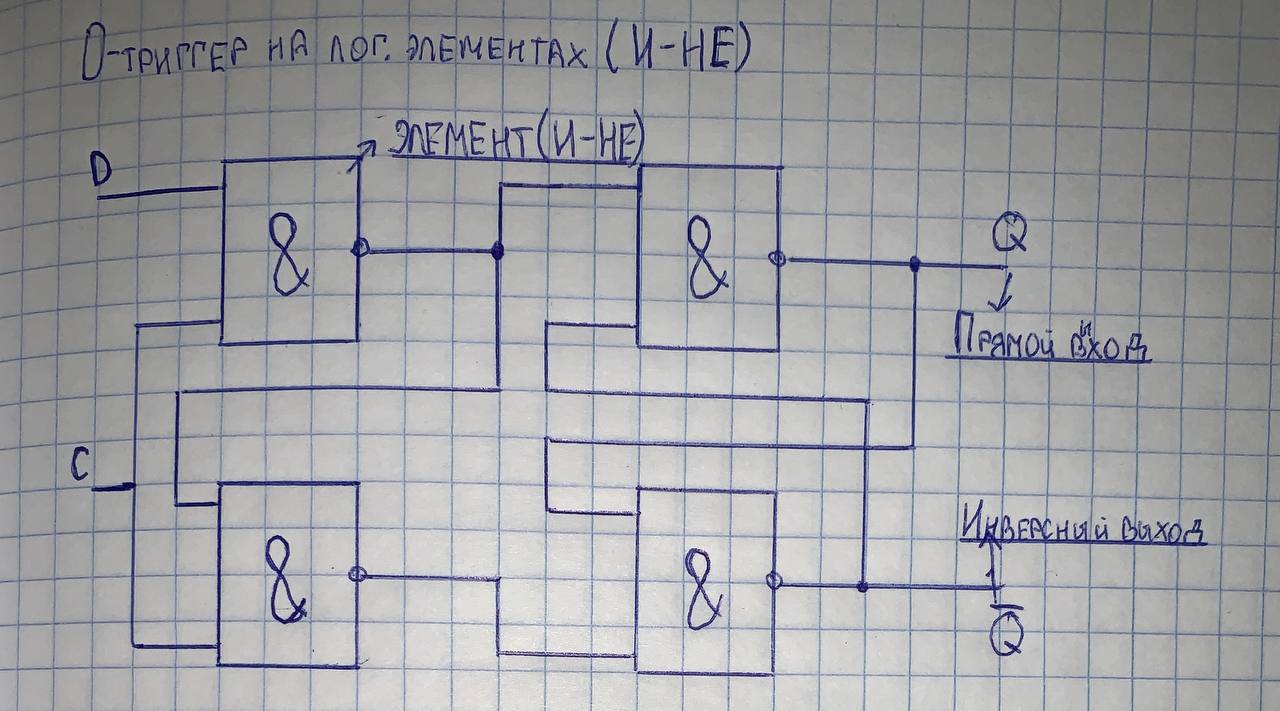 D-ТРИГГЕР НА ЛОГ. ЭЛЕМЕНТАХ (И-НЕ)
ЭЛЕМЕНТ(И-НЕ)
D
&
&
Q
ПРЯМОЙ ВИХОД
C
ИНВЕРСНЫЙ ВИХОД
&
&
Q̅